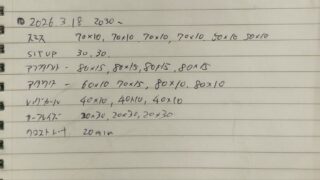 2026 3 18 2030~
スミス 70×10, 70×10, 70×10, 70×10, 50×10 50×10
SIT UP 30, 30.
アブダクター 80×15, 80×15, 80×15, 80×15
アダクター 60×10 70×15, 80×10, 80×10
レッグカール 40×10, 40×10, 40×10
カーフレイズ 20×30, 20×30, 20×30
クロストレーナ 20min